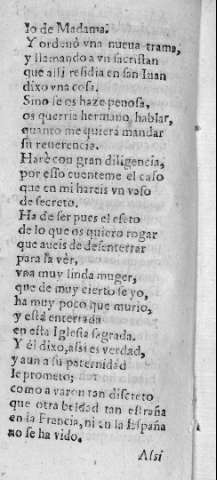 lo de Madama.
Y ordenò vna nueua trama,
y llamando a vn sacristan
que alli residia en san Iuan
dixo vna cosa.
Sino se os haze penosa,
os querria hermano hablar,
quanto me quierà mandar
su reuerencia.
Harè con gran diligencia,
por esso cuenteme el caso
que en mi hareis vn vaso
de secreto.
Ha de ser pues el efeto
de lo que os quiero rogar
que aueis de desenterrar
para la vèr,
vna muy linda muger,
que de muy cierto se yo,
ha muy poco que murio,
y està enterrada
en esta Iglesia sagrada.
Y èl dixo, assi es verdad,
y aun a su paternidad
le prometo;
como a varon tan discreto
que otra beldad tan estraña
en la Francia, ni en la España
no se ha vido.
Assi